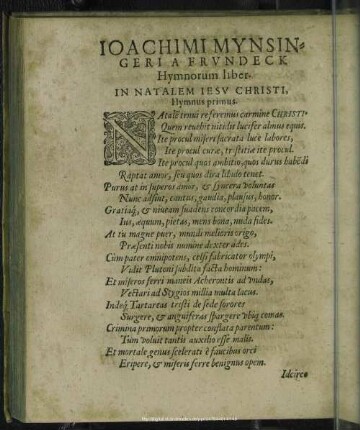 IOACHIMI MYNSIN=
GERI A FRVNDECK
Hymnorum liber.
IN NATALEM IESV CHRISTI,
Hymnus primus.
NAtalē tenui referimus carmine CHRISTI.
Quem reuehit niueis lucifer almus equis.
Ite procul miseri sacrata luce labores,
Ite procul curæ, tristitiæ ite procul.
Ite procul quos ambitio, quos durus habēdi
Raptat amor, seu quos dira libido tenet.
Purus at in superos amor, & syncera voluntas
Nunc adsint, cantus, gaudia, plausus, honor.
Gratiaq́, & niueam suadens concordia pacem,
Ius, æquum, pietas, mens bona, nuda fides.
At tu magne puer, mundi melioris origo,
Præsenti nobis nomine dexter ades.
Cum pater omnipotens, celsi fabricator olympi,
Vidit Plutoni subdita facta hominum:
Et miseros ferri maneis Acherontis ad vndas,
Vectari ad Stygios millia multa lacus.
Indeq́ Tartareas tristi de sede sorores
Surgere, & anguiferas spargere vbiq́ comas.
Crimina primorum propter conflata parentum:
Tum voluit tantis auxilio esse malis.
Et mortale genus scelerati è faucibus orci
Eripere, & miseris ferre benignus opem.
Idcirco